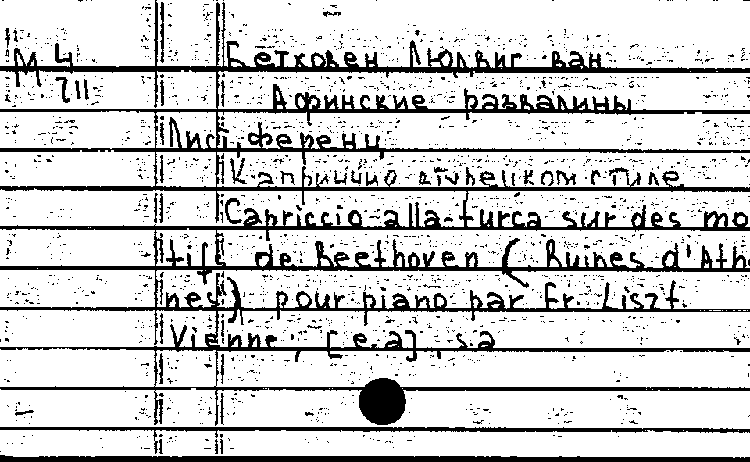 М 4
711
Бетховен, Людвиг ван
Афинские развалины
Лист, Ференц
Каприччио в турецком стиле
Capriccio alla turca sur des mo
tifs de Beethoven ( Ruines d'Athe
nes) pour piano par Fr. Liszt.
Vienne, [e. a], s. a